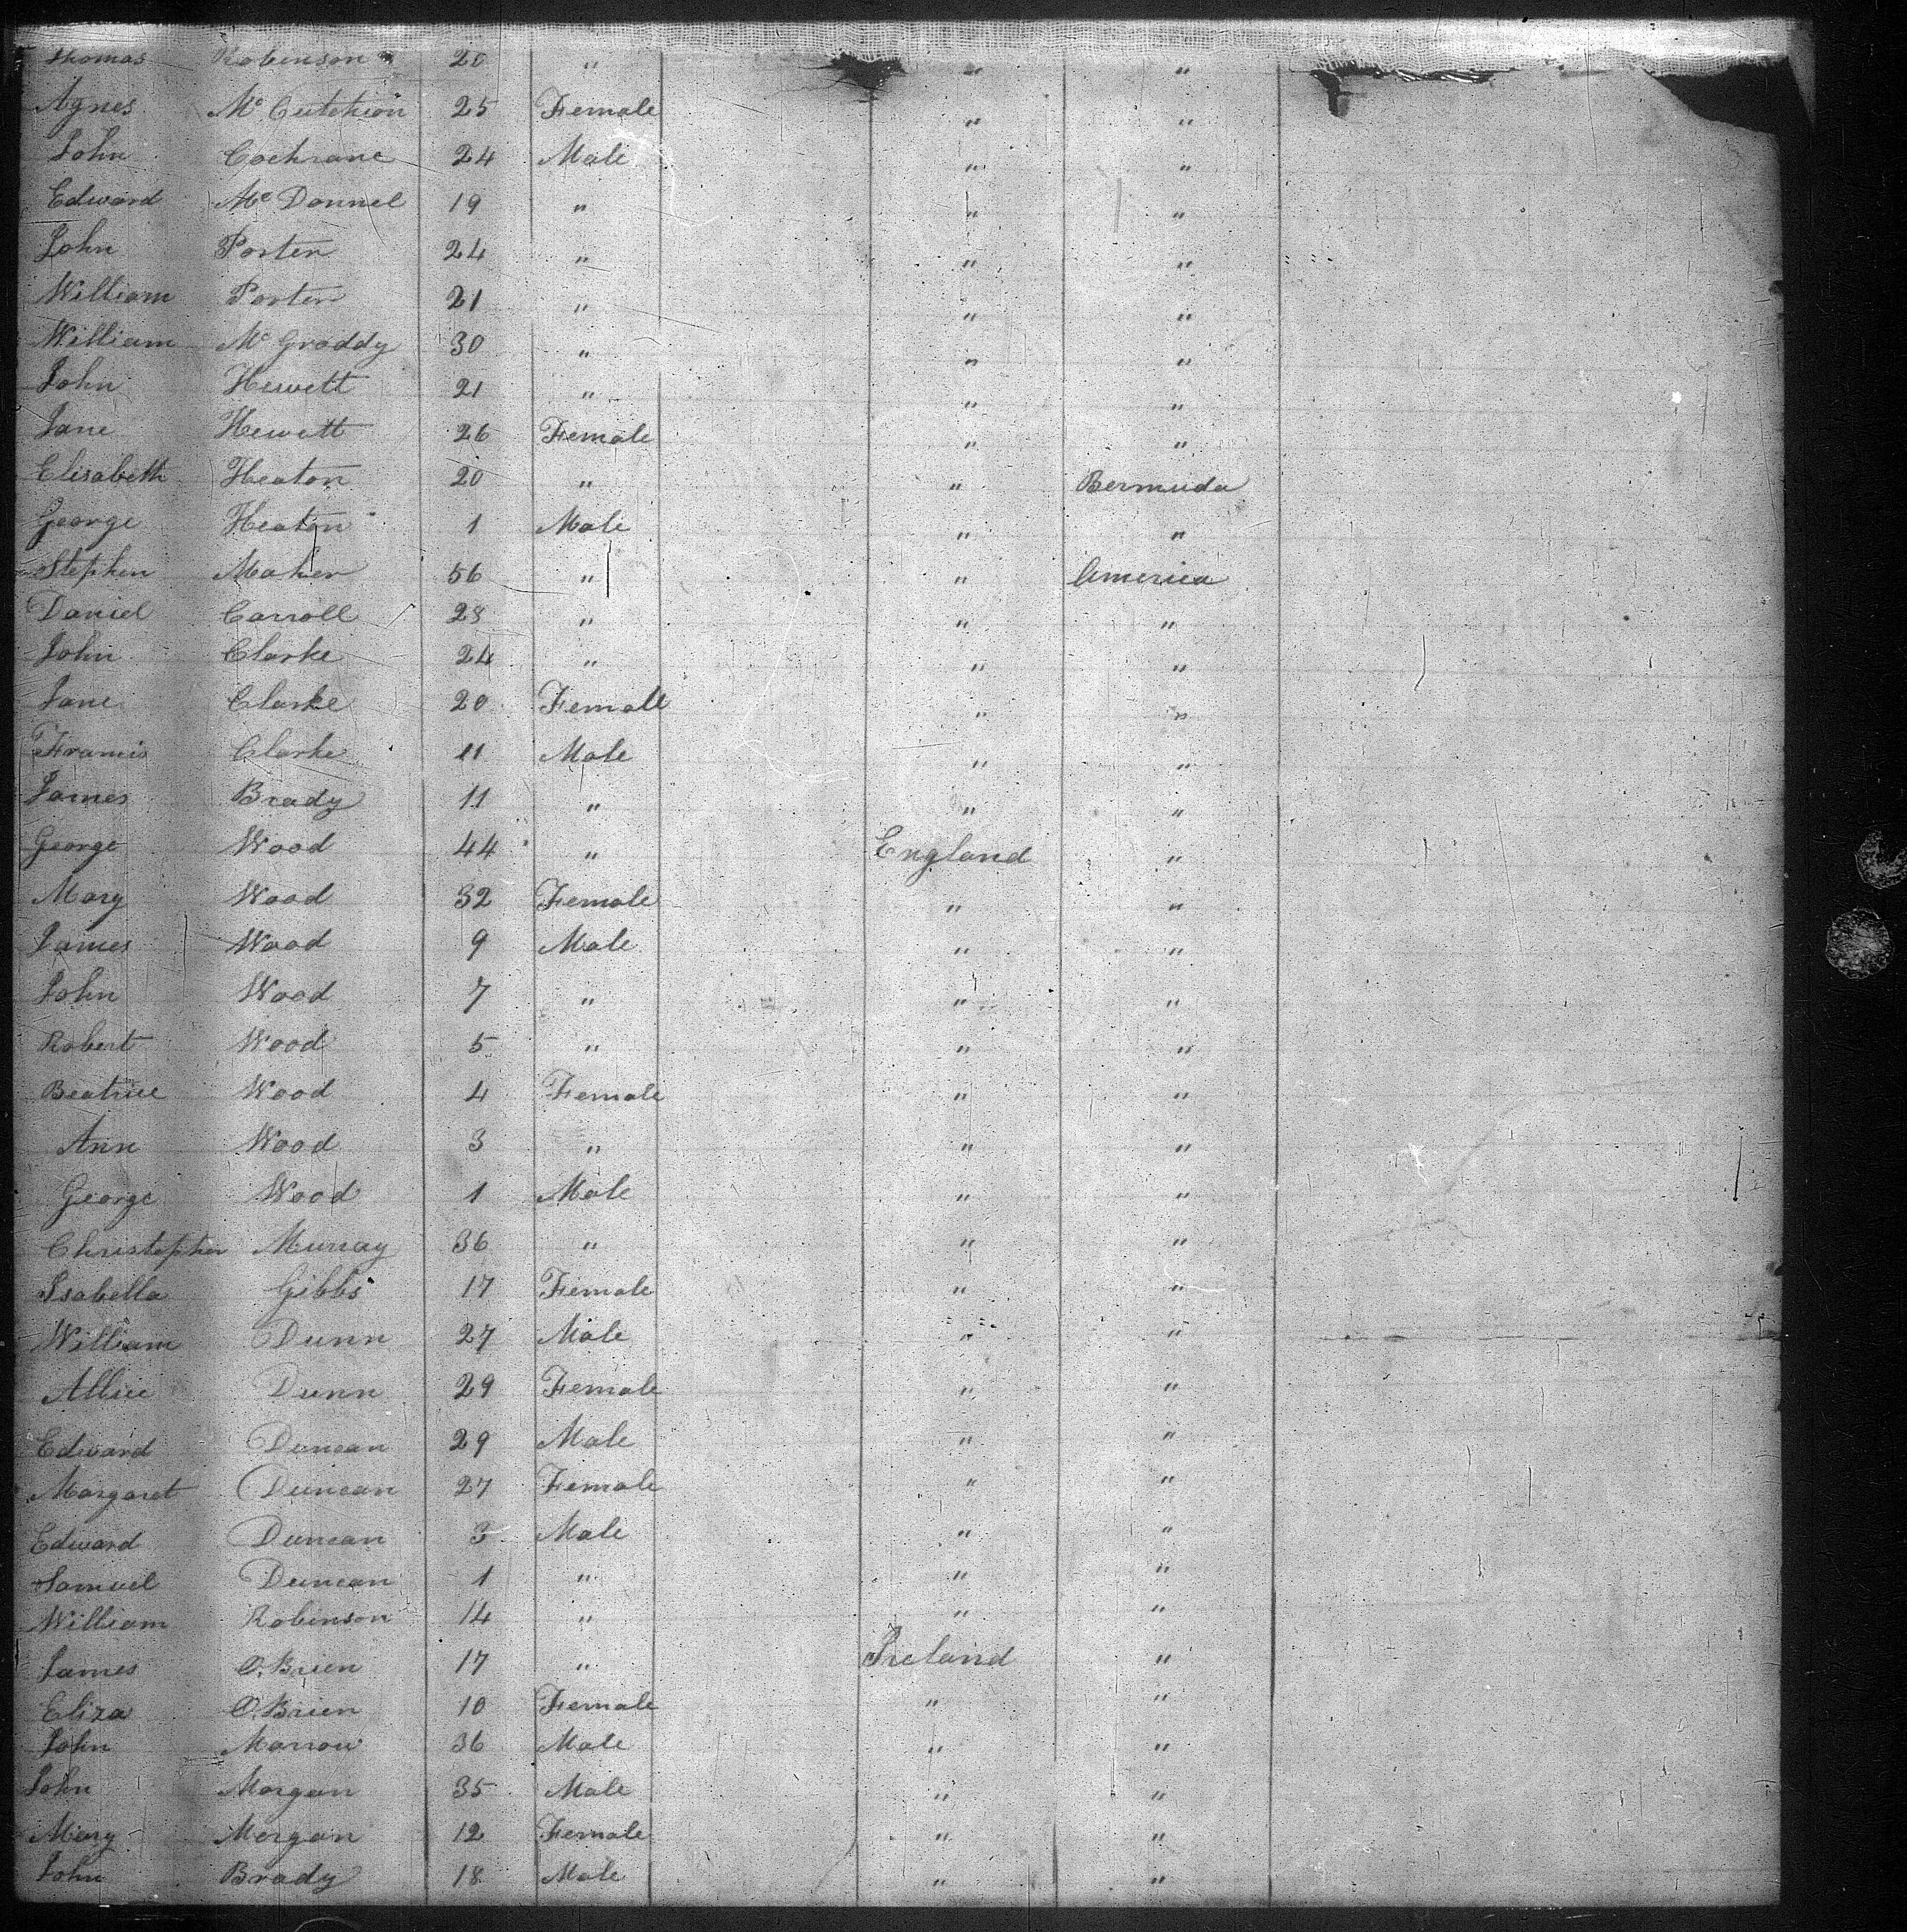 Thomas Robinson 20 " " "
Agnes Mc Cutchion 25 Female " "
John Cochrane 24 Male " "
Edward Mc Donnel 19 " " "
John Porter 24 " " "
William Porter 21 " " "
William Mc Groddy 30 " " "
John Hewett 21 " " "
Jane Hewett 26 Female " "
Elisabeth Heaton 20 " " Bermuda
George Heaton 1 Male " "
Stephen Maher 56 " " America
Daniel Carroll 28 " " "
John Clarke 24 " " "
Jane Clarke 20 Female " "
Francis Clarke 11 Male " "
James Brady 11 " " "
George Wood 44 " England "
Mary Wood 32 Female " "
James Wood 9 Male " "
John Wood 7 " " "
Robert Wood 5 " " "
Beatrice Wood 4 Female " "
Ann Wood 3 " " "
George Wood 1 Male " "
Christopher Murray 36 " " "
Isabella Gibbs 17 Female " "
William Dunn 27 Male " "
Allice Dunn 29 Female " "
Edward Duncan 29 Male " "
Margaret Duncan 27 Female " "
Edward Duncan 3 Male " "
Samuel Duncan 1 " " "
William Robinson 14 " " "
James O'Brien 17 " Ireland "
Eliza O'Brien 10 Female " "
John Marrow 36 Male " "
John Morgan 35 Male " "
Mary Morgan 12 Female " "
John Brady 18 Male " "